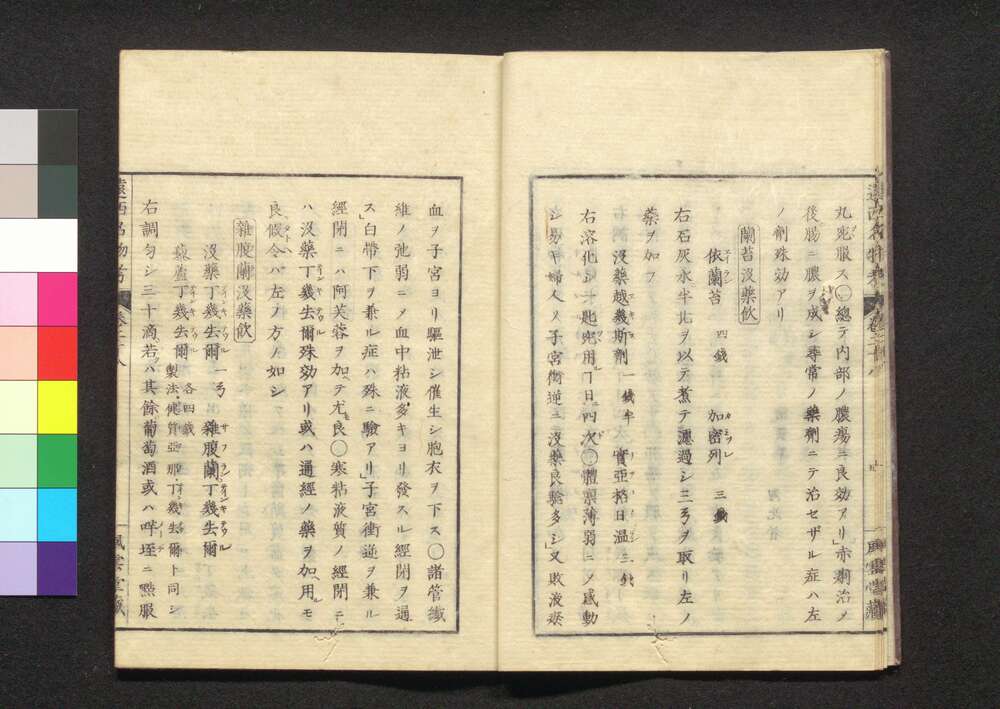 丸兜服ス〇總テ内部ノ膿瘍ニ良効アリ」赤痢治ノ
後腸ニ膿ヲ成シ尋常ノ藥劑ニテ治セザル症ハ左
ノ劑殊効アリ
蘭苔沒藥飲
依蘭苔 四錢 加密列 三錢
右石灰水半比ヲ以テ煮テ濾過シ三弓ヲ取リ左ノ
藥ヲ加フ
沒藥越幾斯劑 一錢半 實亞格日溫 二錢
右溶化シ十匙兜用丁日ニ四次〇體禀薄弱ニメ感動
シ易キ婦人ノ子宮衝逆ニ沒藥良驗多シ又敗液瘀
遠西名物考 卷二十八
風雲堂藏
血ヲ子宮ヨリ驅泄シ催生シ胞衣ヲ下ス〇諸管纖
維ノ弛弱ニメ血中粘液多キヨリ發スル經閉ヲ通
ス」白帶下ヲ兼ル症ハ殊ニ驗アリ」子宮衝逆ヲ兼ル
經閉ニハ阿芙蓉ヲ加ヘテ尤良〇寒粘液質ノ經閉ニ
ハ沒藥丁幾去爾殊効アリ或ハ通經ノ藥ヲ加ヘ用ルモ
良候令ハ左ノ方ノ如シ
雜腹蘭沒藥飲
沒藥丁幾去爾 一弓 雜腹蘭丁幾去爾
藜蘆丁幾去爾 各四錢 製法健質亞那丁幾去爾ト同シ
右調勻シ三十滴若ハ其餘葡萄酒或ハ呼垤ニ點服
遠西名物考 卷二十八
風雲堂藏